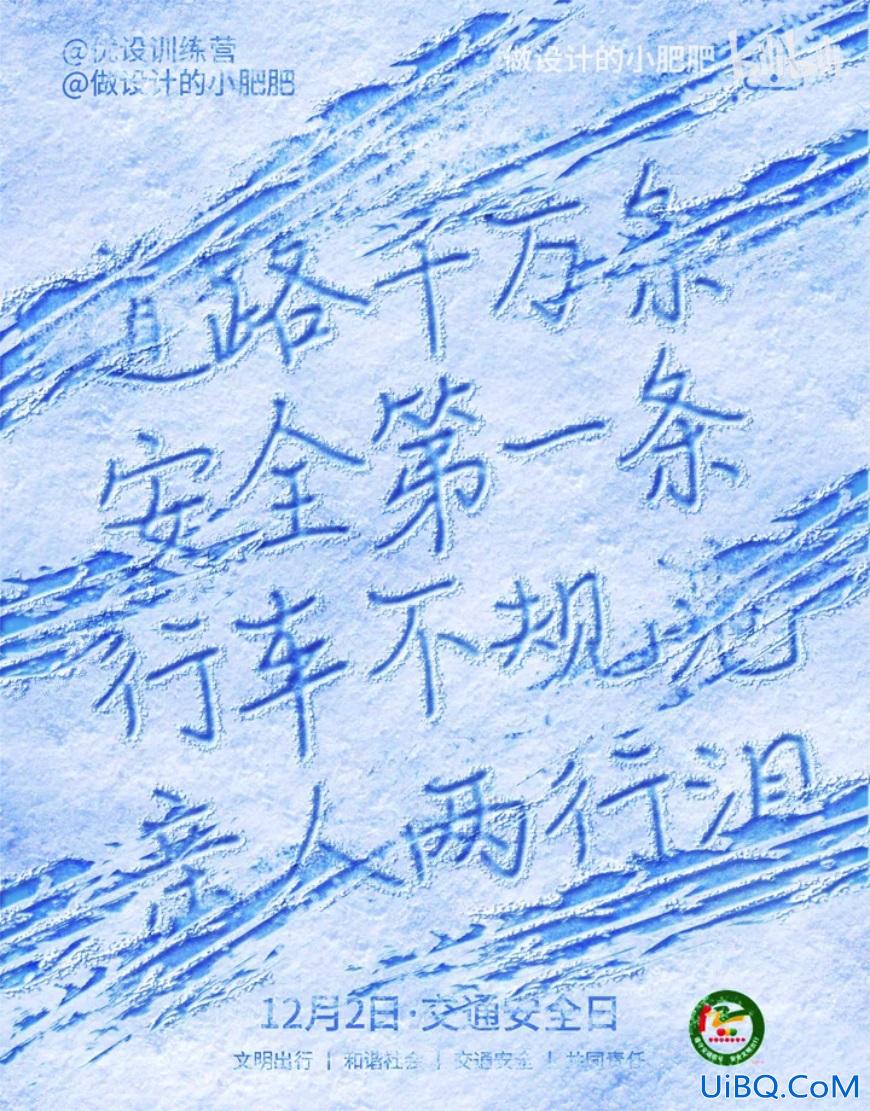 @优设训练营
@做设计的小肥肥
做设计的小肥肥 bilibili
道路千万条
安全第一条
行车不规范
亲人两行泪
12月2日·交通安全日
文明出行 | 和谐社会 | 交通安全 | 共同责任
UiBQ.CoM